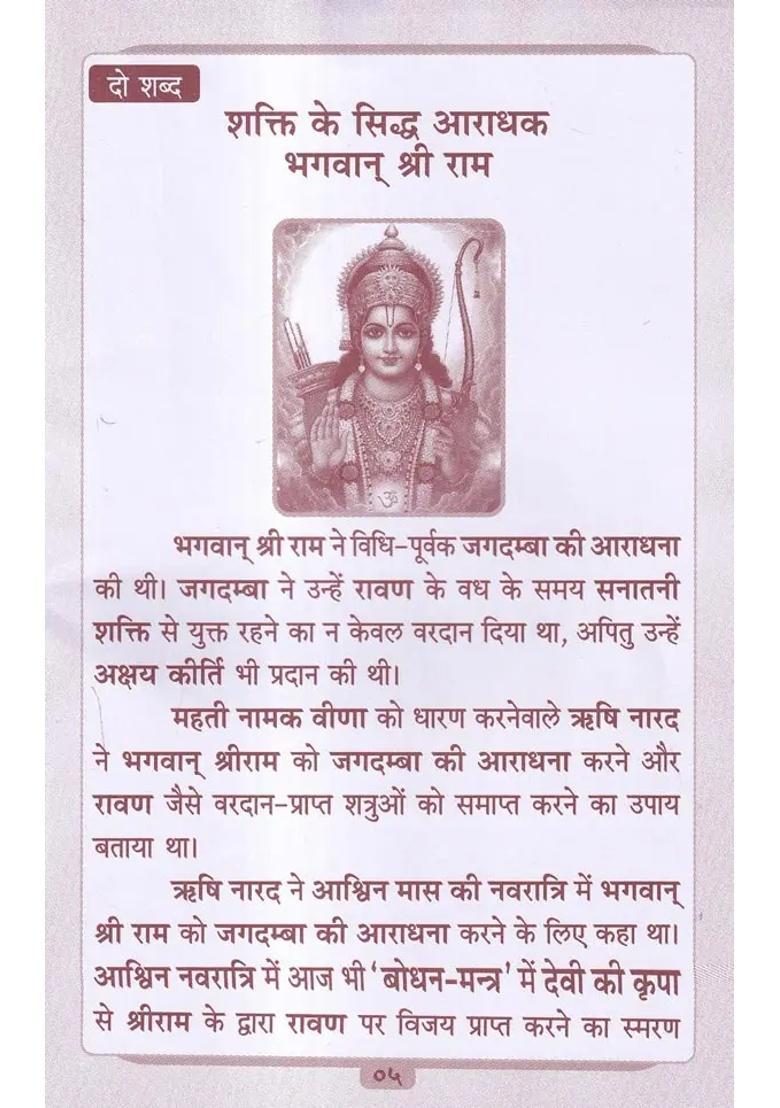 दो शब्द
शक्ति के सिद्ध आराधक
भगवान् श्री राम
ॐ
भगवान् श्री राम ने विधि-पूर्वक जगदम्बा की आराधना
की थी। जगदम्बा ने उन्हें रावण के वध के समय सनातनी
शक्ति से युक्त रहने का न केवल वरदान दिया था, अपितु उन्हें
अक्षय कीर्ति भी प्रदान की थी।
महती नामक वीणा को धारण करनेवाले ऋषि नारद
ने भगवान् श्रीराम को जगदम्बा की आराधना करने और
रावण जैसे वरदान-प्राप्त शत्रुओं को समाप्त करने का उपाय
बताया था।
ऋषि नारद ने आश्विन मास की नवरात्रि में भगवान्
श्री राम को जगदम्बा की आराधना करने के लिए कहा था।
आश्विन नवरात्रि में आज भी ‘बोधन-मन्त्र’ में देवी की कृपा
से श्रीराम के द्वारा रावण पर विजय प्राप्त करने का स्मरण
०५